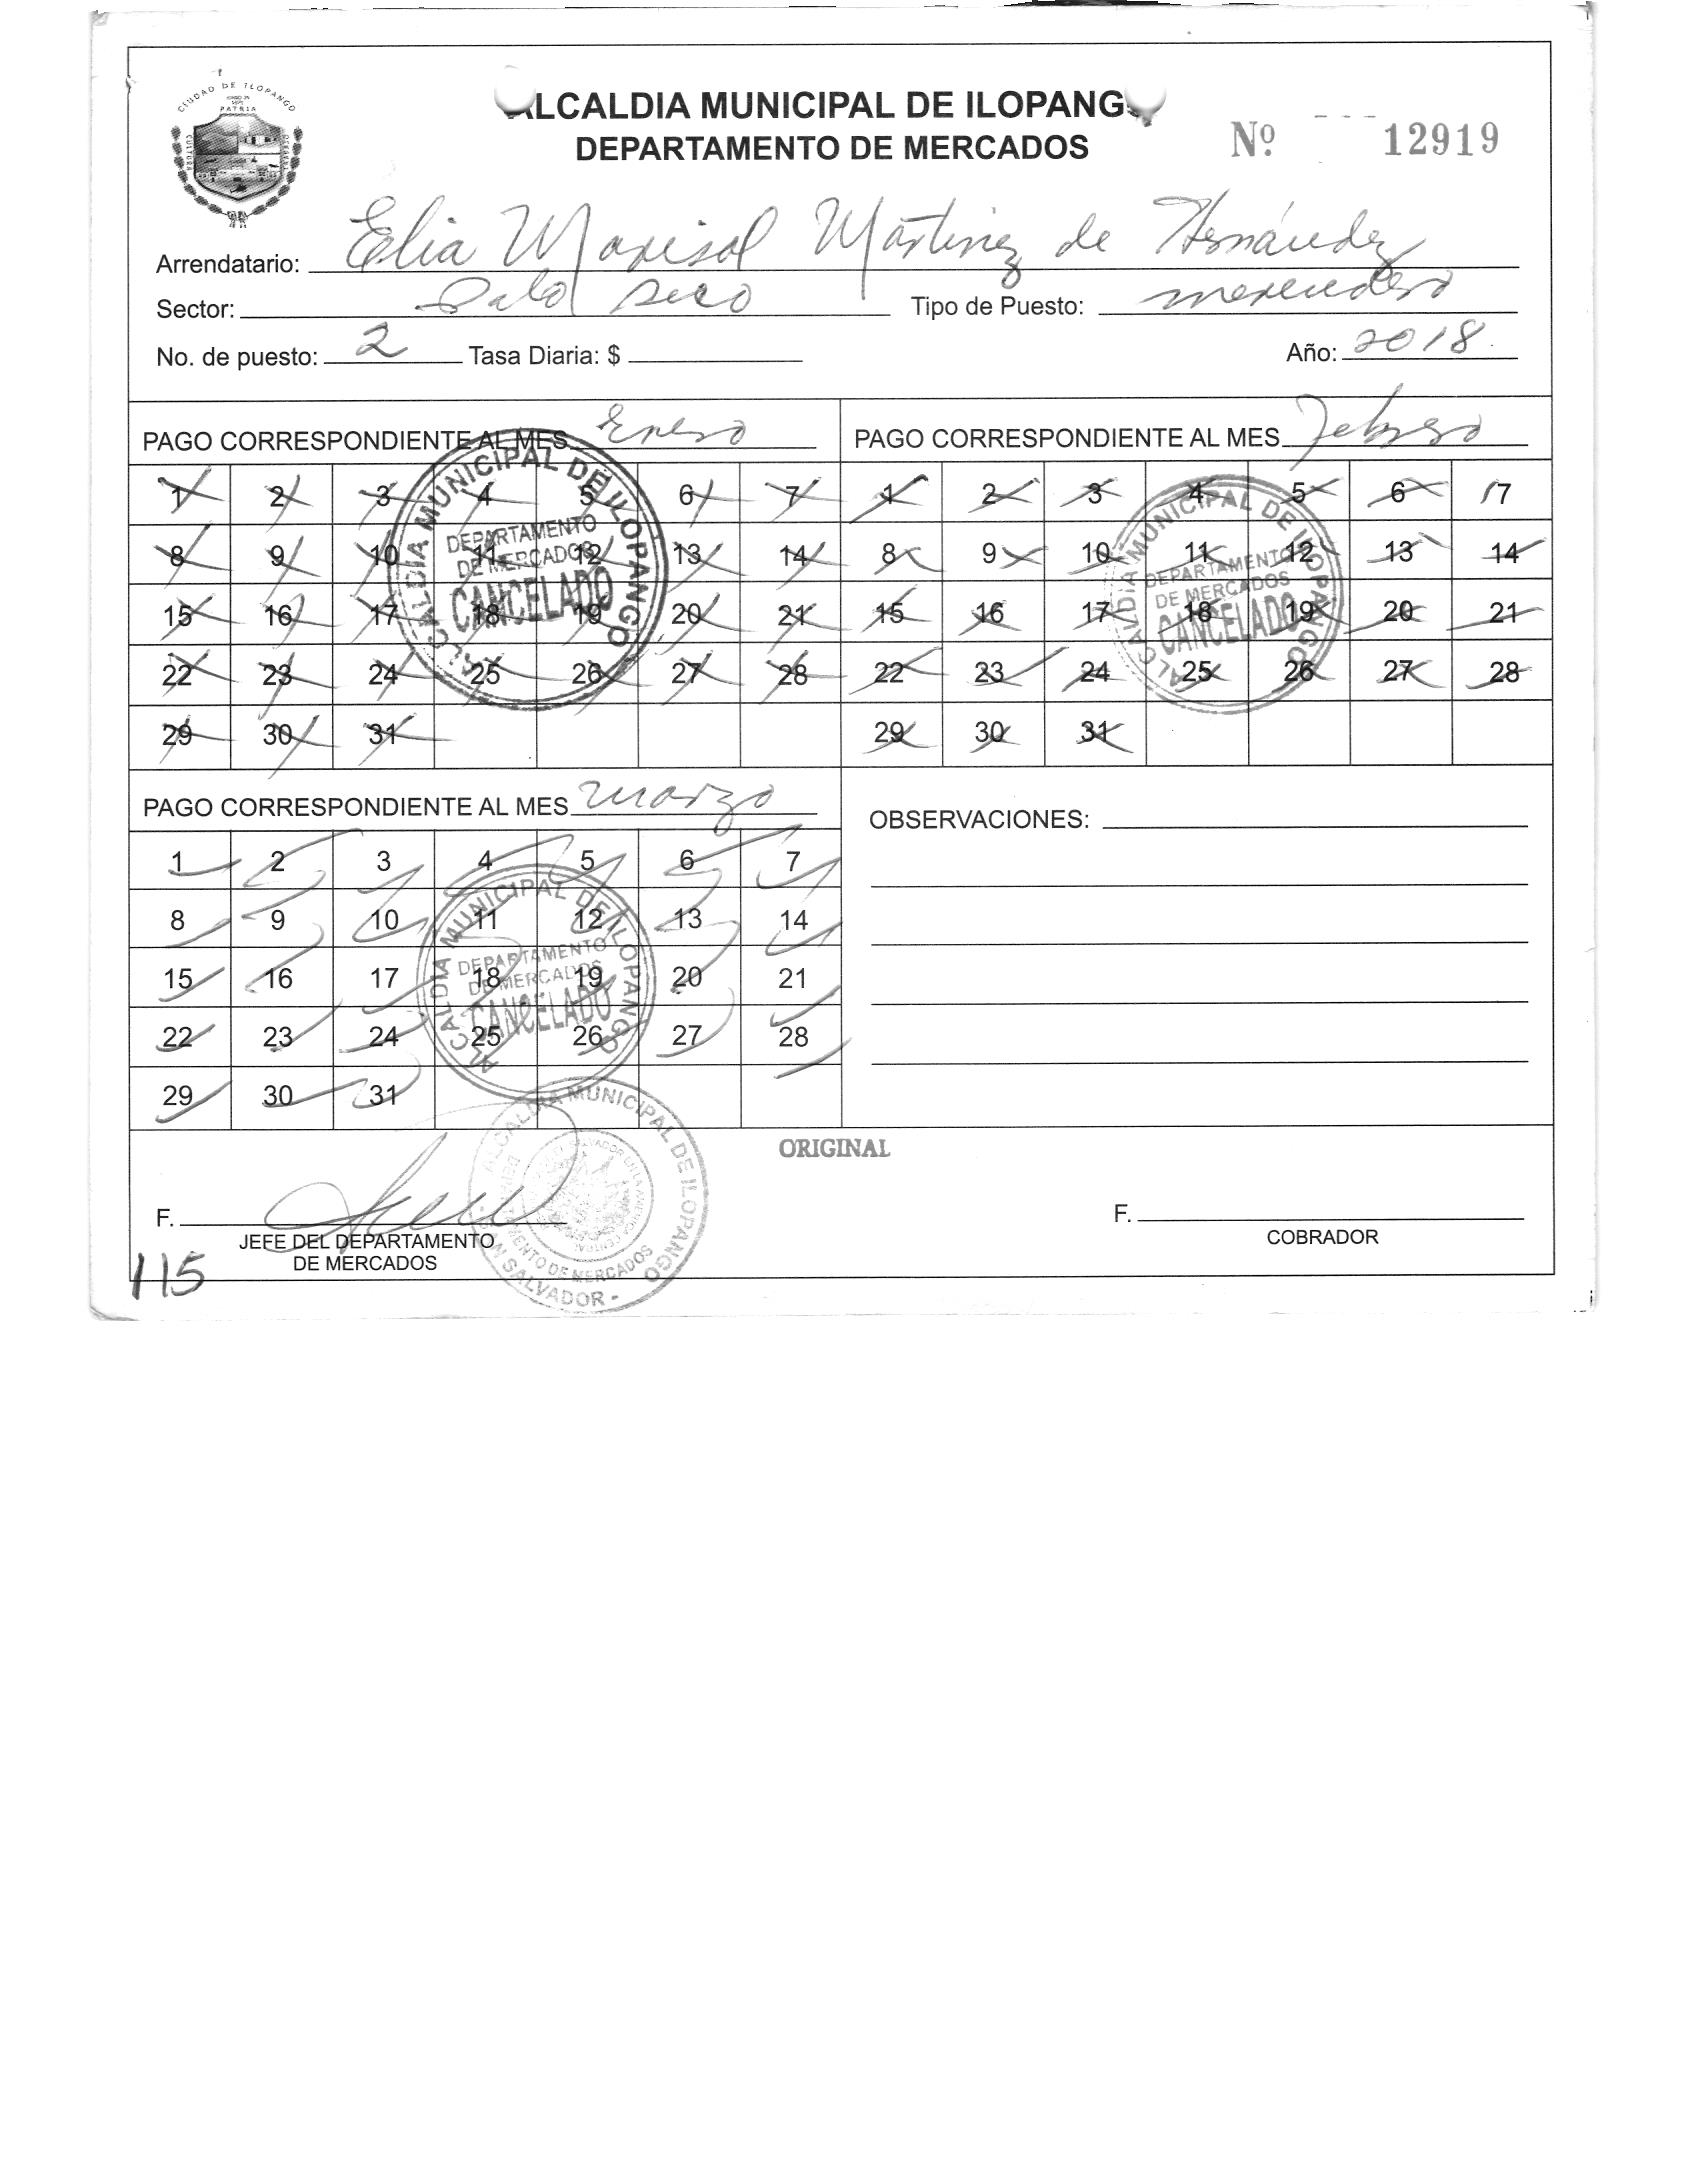 CIUDAD DE ILOPANGO
PATRIA
CULTURA
ALCALDIA MUNICIPAL DE ILOPANGO
DEPARTAMENTO DE MERCADOS
Nº 12919
Arrendatario: Elia Marisol Martinez de Hernández
Sector: Palo Seco Tipo de Puesto: merendero
No. de puesto: 2 Tasa Diaria: $ Año: 2018
PAGO CORRESPONDIENTE AL MES Enero
1 2 3 4 5 6 7
8 9 10 11 12 13 14
15 16 17 18 19 20 21
22 23 24 25 26 27 28
29 30 31
ALCALDIA MUNICIPAL DE ILOPANGO
DEPARTAMENTO
DE MERCADOS
CANCELADO
PAGO CORRESPONDIENTE AL MES Febrero
1 2 3 4 5 6 7
8 9 10 11 12 13 14
15 16 17 18 19 20 21
22 23 24 25 26 27 28
29 30 31
ALCALDIA MUNICIPAL DE ILOPANGO
DEPARTAMENTO
DE MERCADOS
CANCELADO
PAGO CORRESPONDIENTE AL MES marzo
1 2 3 4 5 6 7
8 9 10 11 12 13 14
15 16 17 18 19 20 21
22 23 24 25 26 27 28
29 30 31
ALCALDIA MUNICIPAL DE ILOPANGO
DEPARTAMENTO
DE MERCADOS
CANCELADO
OBSERVACIONES:
ORIGINAL
F.
JEFE DEL DEPARTAMENTO
DE MERCADOS
ALCALDIA MUNICIPAL DE ILOPANGO
DEPARTAMENTO DE MERCADOS
SAN SALVADOR -
F.
COBRADOR
115